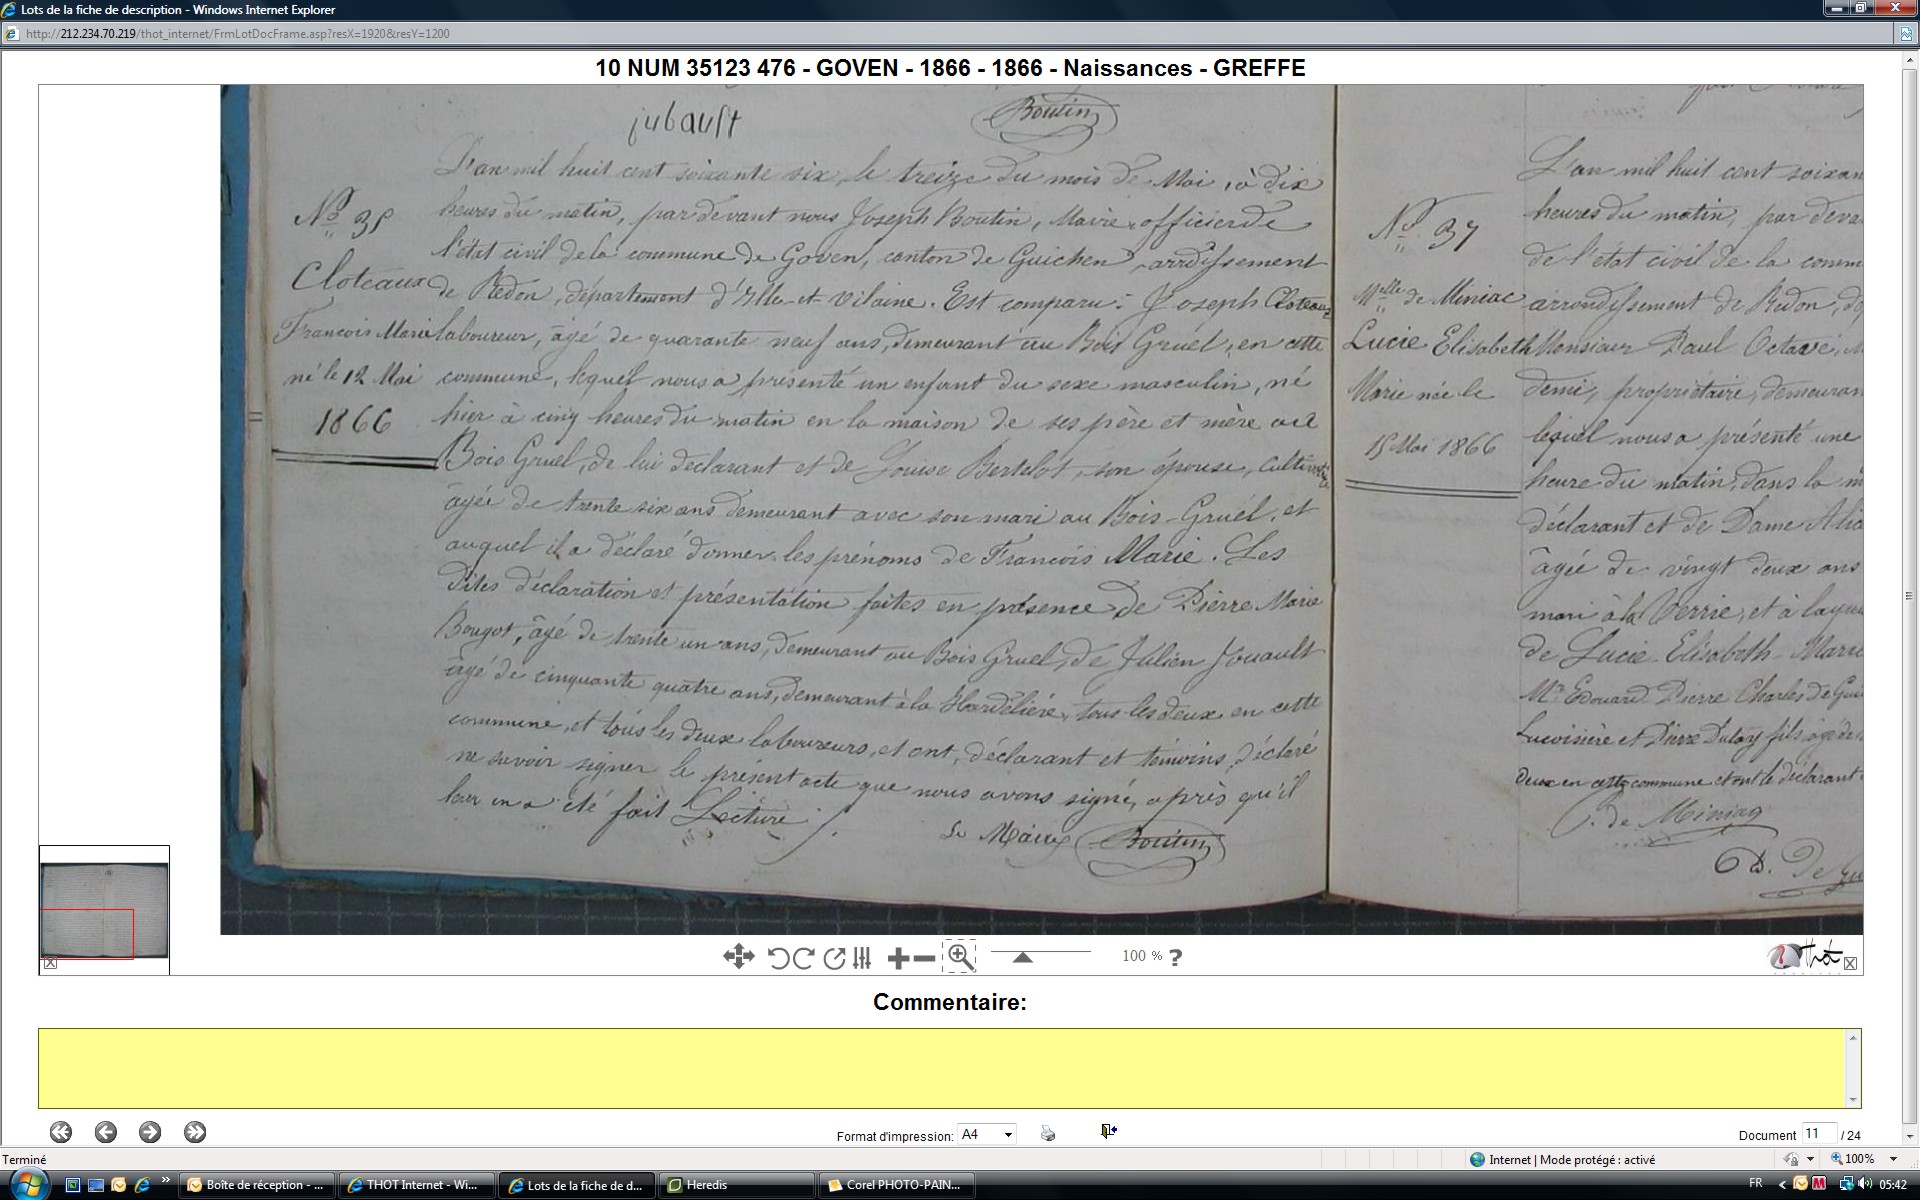 Lots de la fiche de description - Windows Internet Explorer
http://212.234.70.219/thot_internet/FrmLotDocFrame.asp?resX=1920&resY=1200
10 NUM 35123 476 - GOVEN - 1866 - 1866 - Naissances - GREFFE
jubault
Boutin
L'an mil huit cent soixante six, le treize du mois de Mai, à dix
heures du matin, par devant nous Joseph Boutin, Maire officier de
l'état civil de la commune de Goven, canton de Guichen, arrdissement
de Redon, département d'Ille-et-Vilaine. Est comparu: Joseph Cloteaux
laboureur, âgé de quarante neuf ans, demeurant au Bois Gruel, en cette
commune, lequel nous a présenté un enfant du sexe masculin, né
hier à cinq heures du matin en la maison de ses père et mère au
Bois Gruel, de lui déclarant et de Louise Bertelot, son épouse,
âgée de trente six ans demeurant avec son mari au Bois-Gruel, et
auquel il a déclaré donner les prénoms de François Marie. Les
dites déclaration et présentation faites en présence de Pierre Marie
Bougot, âgé de trente un ans, demeurant au Bois Gruel, de Julien Jouault
âgé de cinquante quatre ans, demeurant à la Hardélière, tous les deux en cette
commune, et tous les deux laboureurs, et ont, déclarant et témoins, déclaré
ne savoir signer le présent acte que nous avons signé, après qu'il
leur en a été fait Lecture
Le Maire Boutin
No 35
Cloteaux
François Marie
né le 12 Mai
1866
No 37
Melle de Miniac
Lucie Elisabeth
Marie née le
15 Mai 1866
L'an mil huit cent soixan
heures du matin, par deva
de l'état civil de la comm
arrondissement de Redon, dé
Monsieur Paul Octave, M
demi, propriétaire, demeuran
lequel nous a présenté une
heure du matin, dans la m
déclarant et de Dame
âgée de vingt deux ans
mari à la Verrie, et à laque
de Lucie Elisabeth Marie
Mr Edouard Pierre Charles de Gui
et Pierre fils, âgé de
deux en cette commune et ont le déclarant
P. de Miniac
De
100 % ?
Thot
Commentaire:
Format d'impression: A4
Document 11 / 24
Terminé
Internet | Mode protégé : activé
100%
Boîte de réception - ...
THOT Internet - Wi...
Lots de la fiche de d...
Heredis
Corel PHOTO-PAIN...
FR
05:42